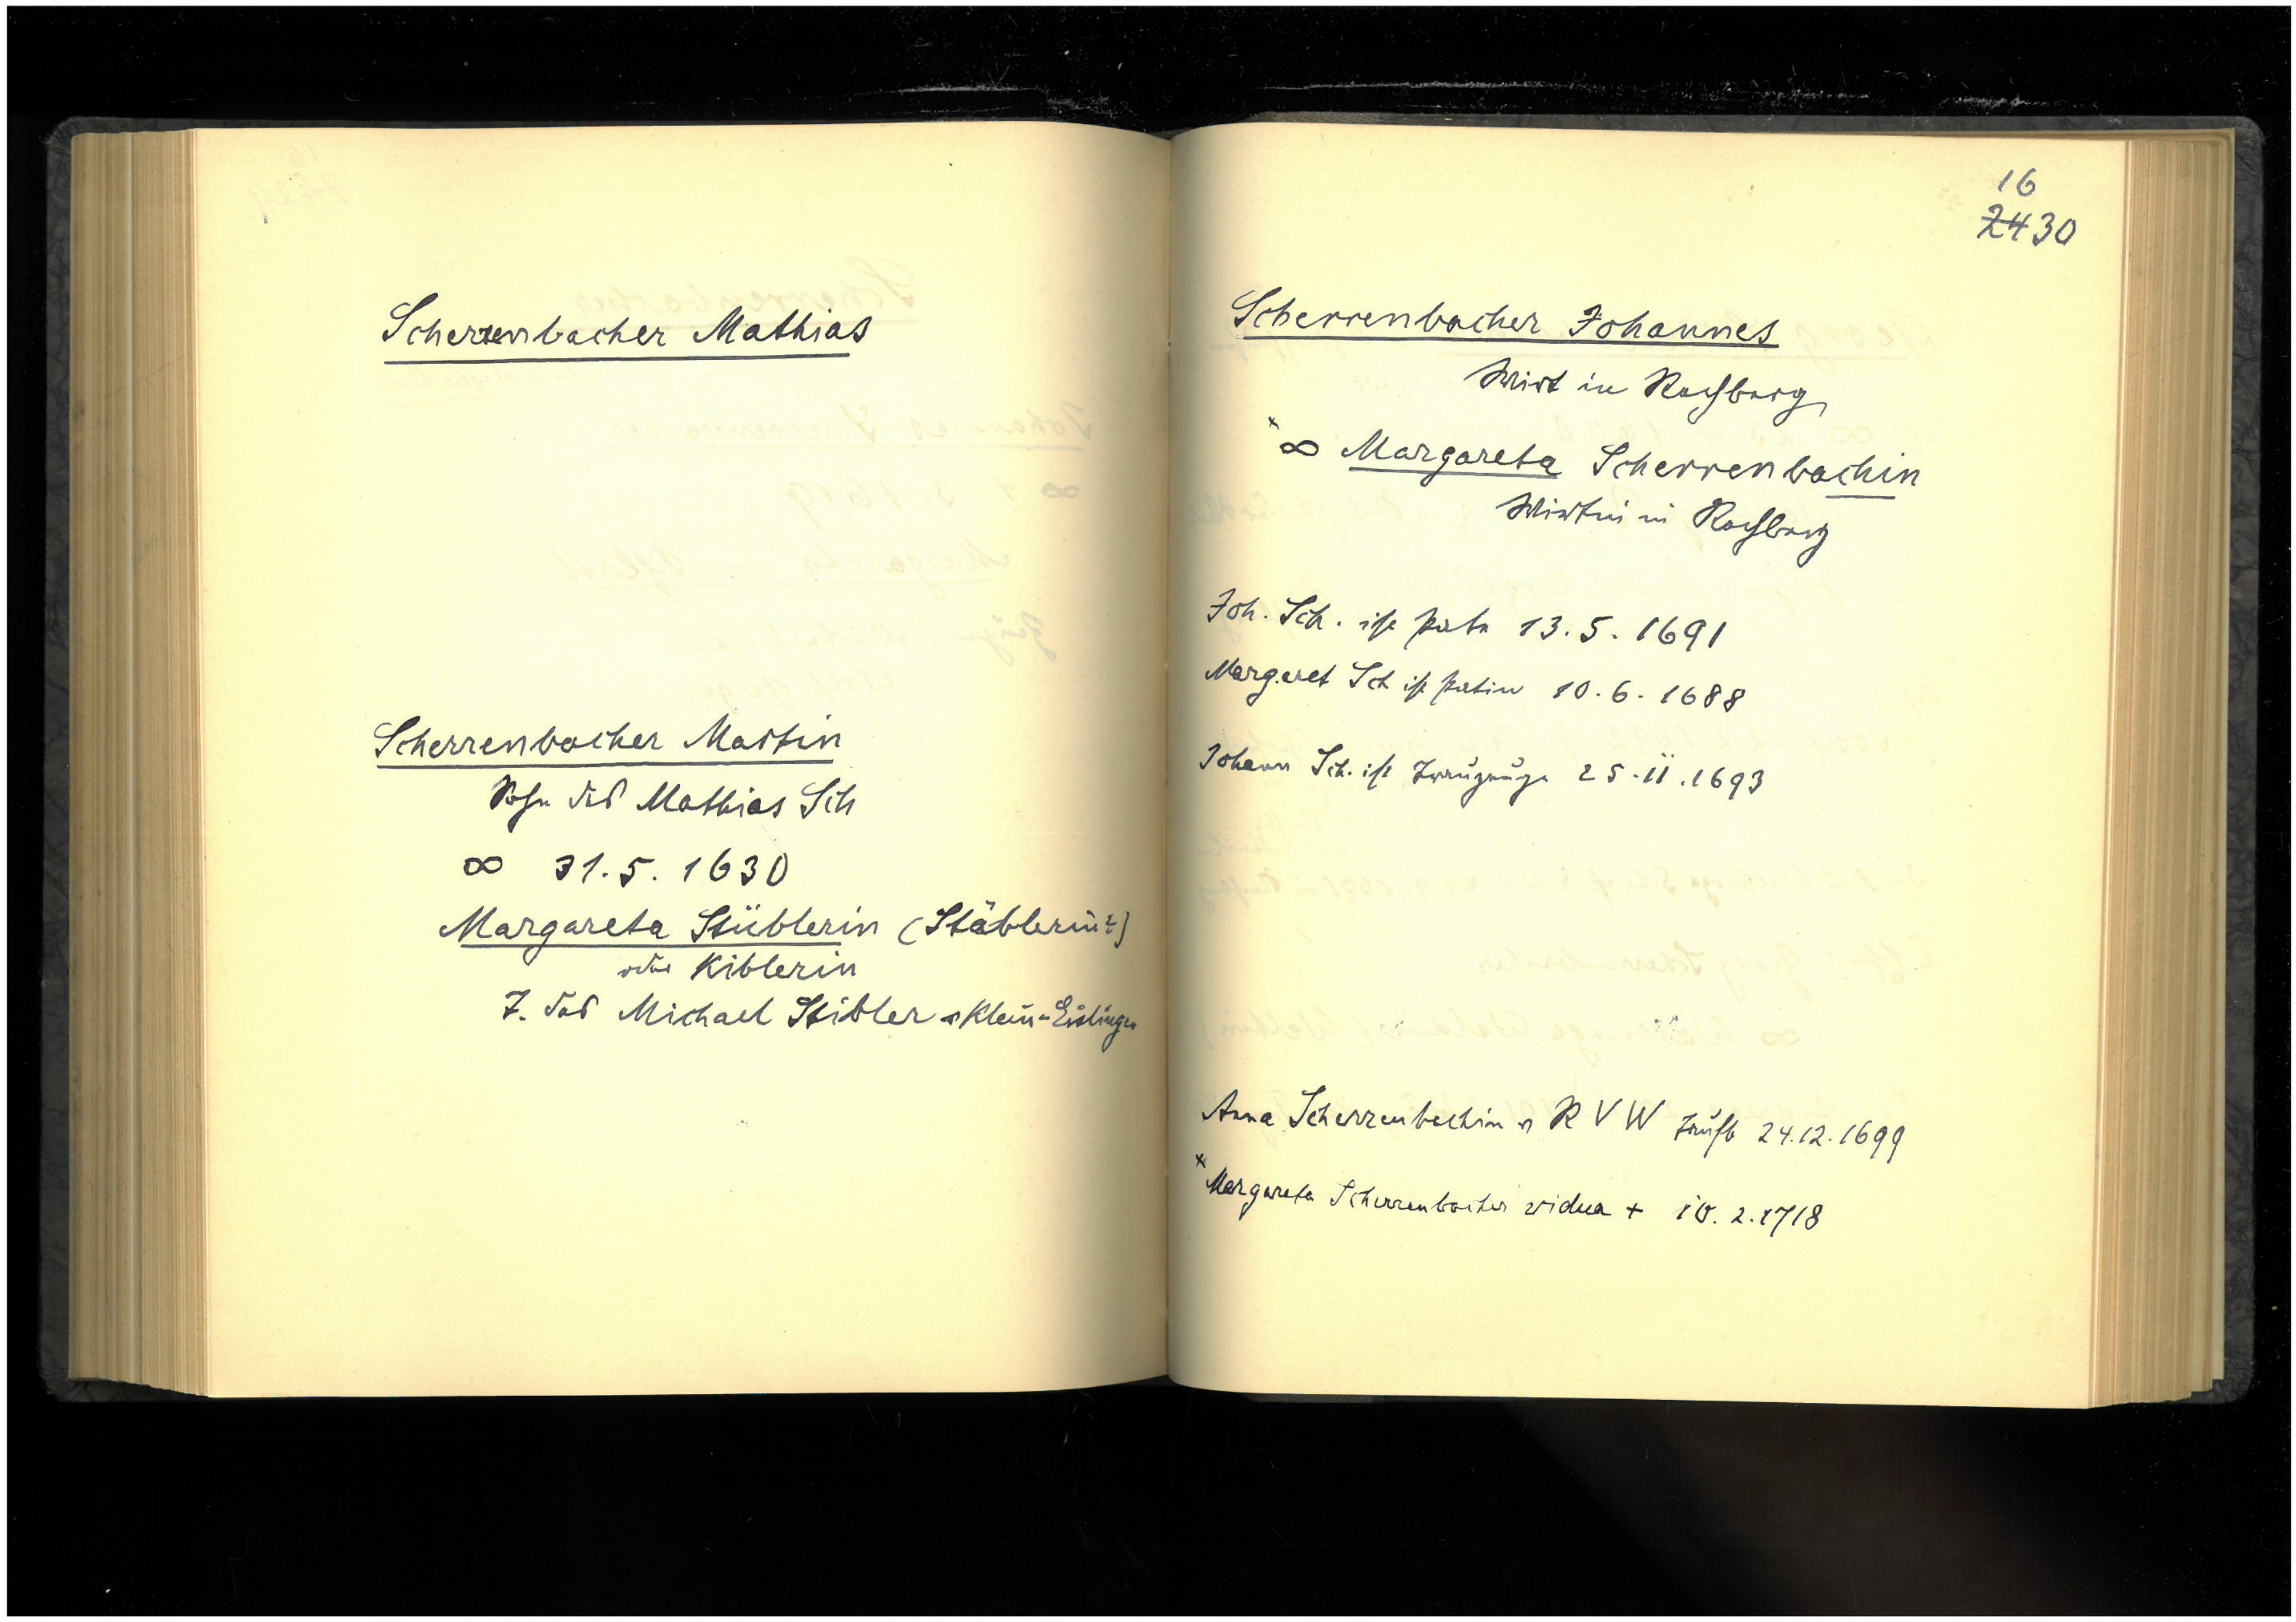 Scherrenbacher Mathias
Scherrenbacher Martin
Sohn des Mathias Sch
∞ 31.5.1630
Margareta Stüblerin (Stäblerin?)
oder Kiblerin
T. des Michael Stibler v Klein-Eislingen
16
24 30
Scherrenbacher Johannes
Wirt in Rechberg
x ∞ Margareta Scherrenbachin
Wirtin in Rechberg
Joh. Sch. ist Pate 13.5.1691
Margaret Sch ist Patin 10.6.1688
Johann Sch. ist Trauzeuge 25.11.1693
Anna Scherrenbechin v R V W Taufe 24.12.1699
x Margareta Scherrenbacher vidua + 10.2.1718